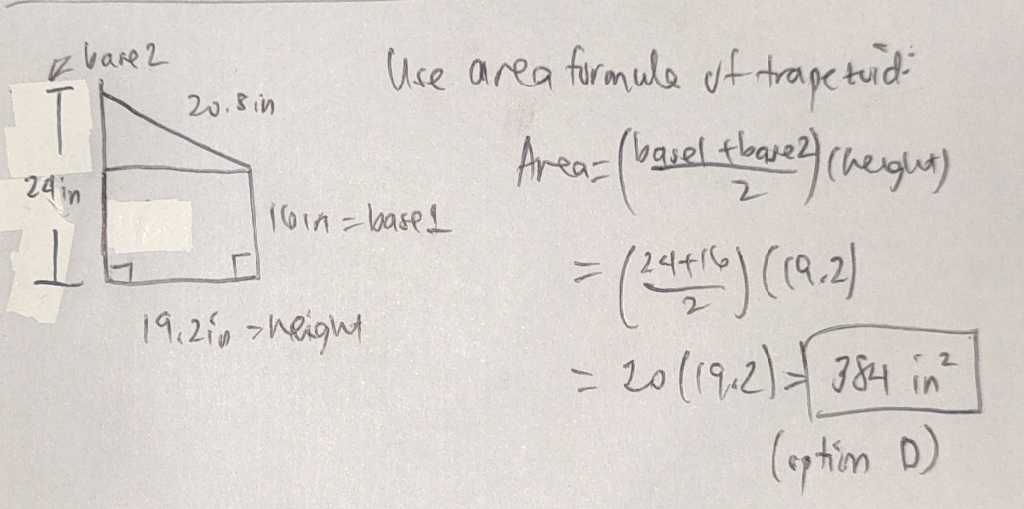 base 2
20.8 in
24in
16in = base 1
19.2in = height
Use area formula of trapezoid:
Area = (base1 + base2 / 2) (height)
= (24+16 / 2) (19.2)
= 20 (19.2) = 384 in²
(option D)